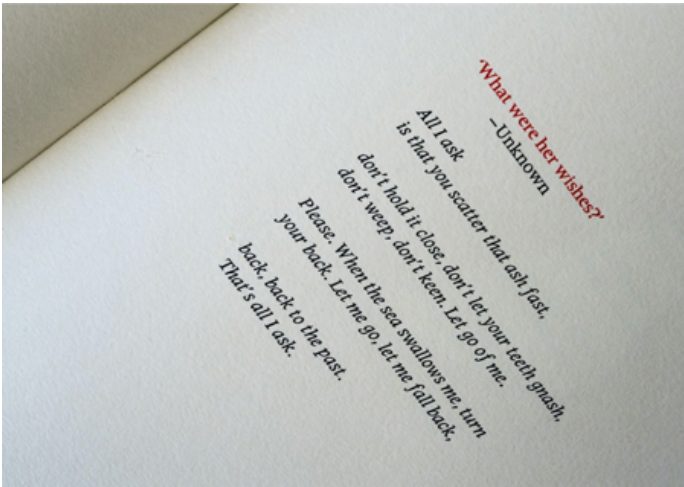 ‘What were her wishes?’
–Unknown
All I ask
is that you scatter that ash fast,
don’t hold it close, don’t let your teeth gnash,
don’t weep, don’t keen. Let go of me.
Please. When the sea swallows me, turn
your back. Let me go, let me fall back,
back, back to the past.
That’s all I ask.